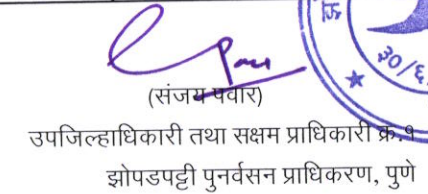 (संजय पवार)
उपजिल्हाधिकारी तथा सक्षम प्राधिकारी क्र.१
झोपडपट्टी पुनर्वसन प्राधिकरण, पुणे
३०/६